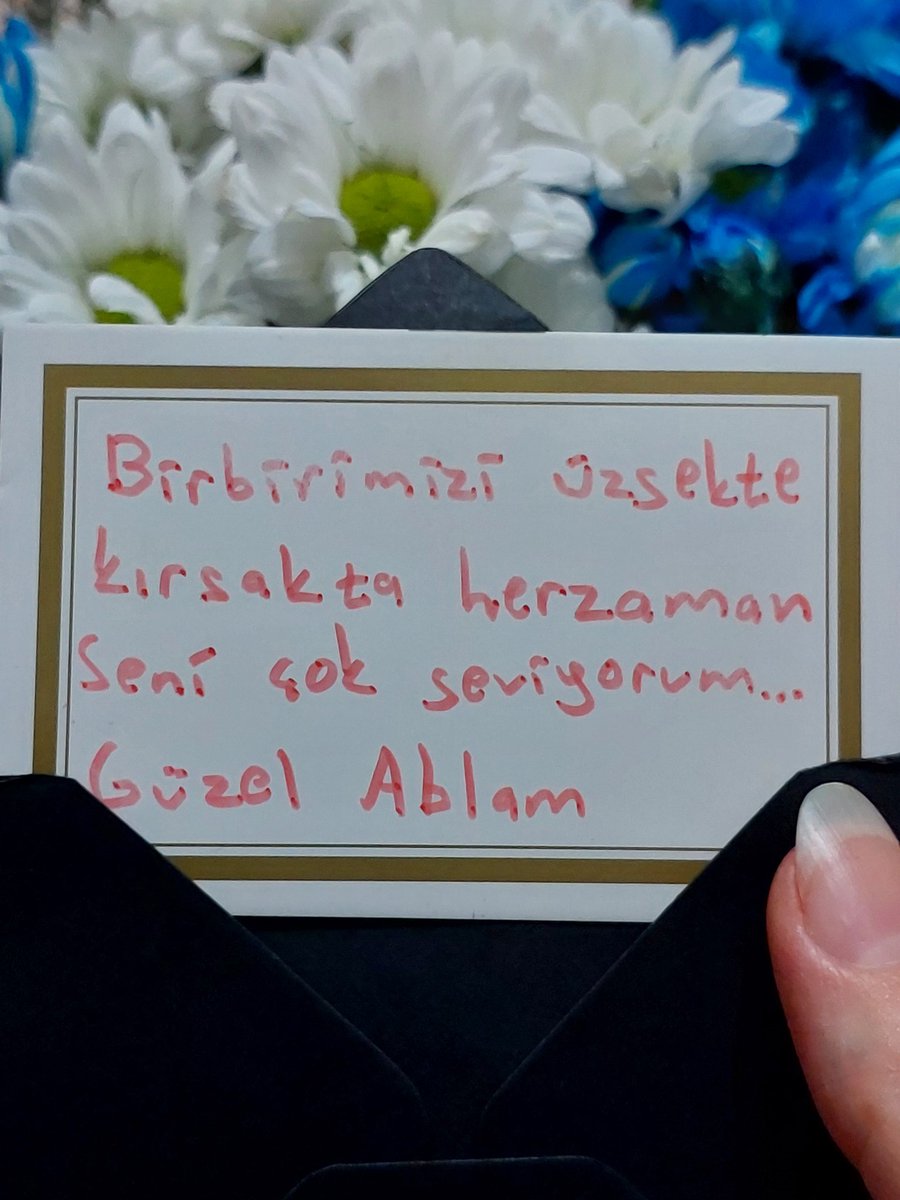 Birbirimizi üzsekte
kırsakta herzaman
Seni çok seviyorum...
Güzel Ablam